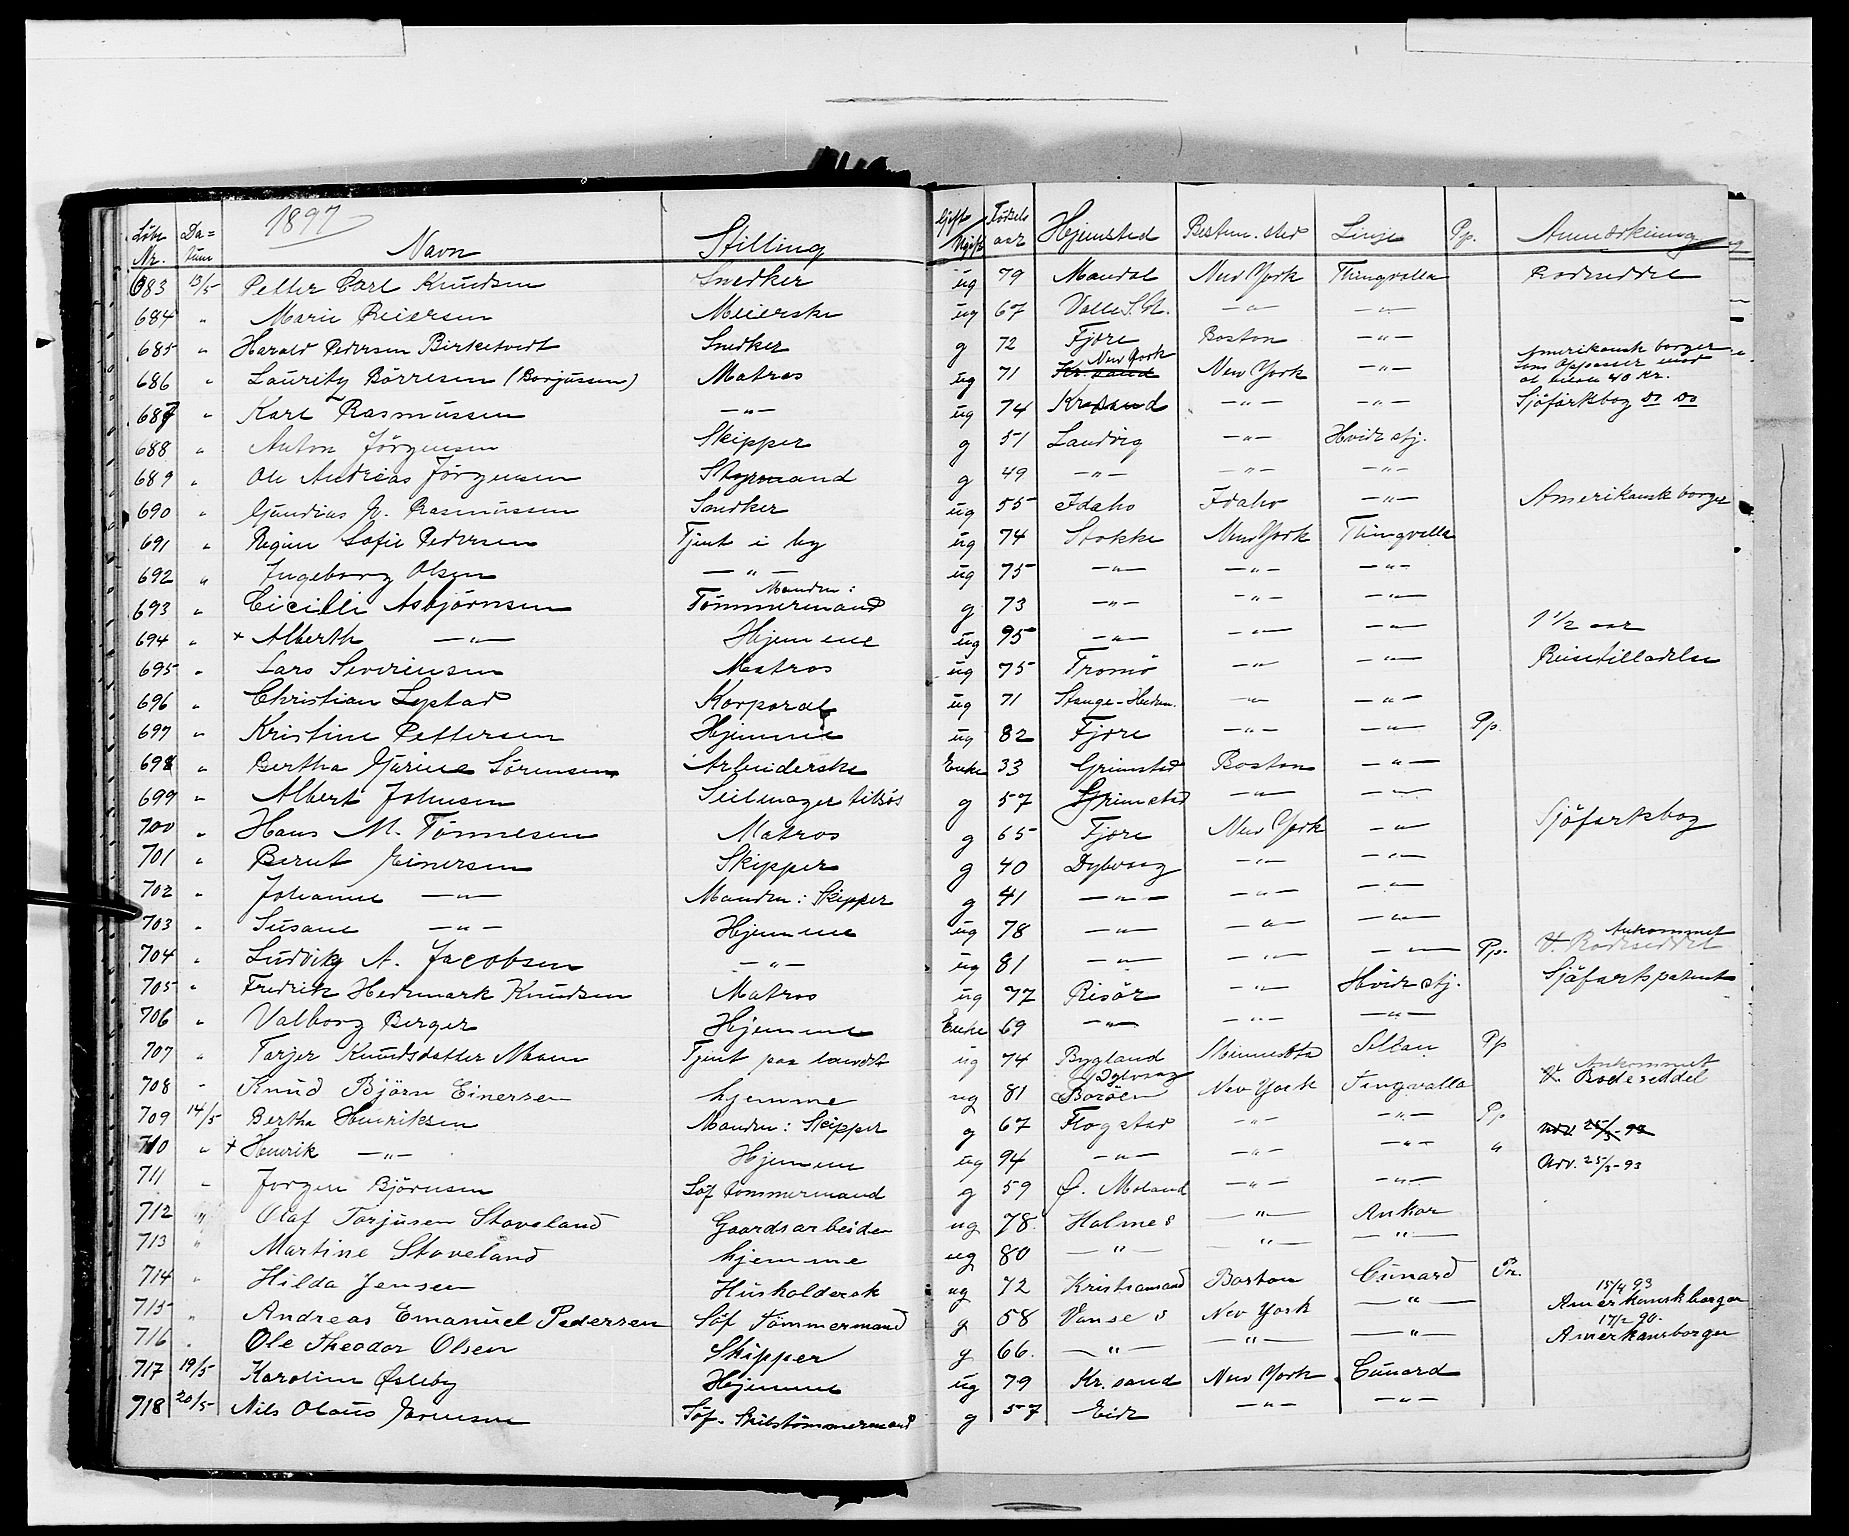 1897
Löbe Nr. Da= tum Navn Stilling Gift Ugift Födsels aar Hjemsted Bestem. sted Linje Pp. Anmærkning
683 13/5 Petter Carl Knudsen Snedker ug 79 Mandal New York Thingvalla Rodeseddel
684 " Marie Reiersen Meierske ug 67 Valle S.St. —"— —"—
685 " Harald Pedersen Birketvedt Snedker g 72 Fjære Boston —"—
686 " Lauritz Börresen (Borjussen) Matros ug 71 Kr.sand New York New York —"— Amerikansk borger som Oppasser mod at betale 40 Kr.
687 " Karl Rasmussen —"— ug 74 Kr.sand —"— —"— Sjöfartsbog Do Do
688 " Anton Jörgensen Skipper g 51 Landvig —"— Hvide stj.
689 " Ole Andreas Jörgensen Styrmand g 49 —"— —"— —"—
690 " Gundias J. Rasmussen Snedker ug 55 Idaho Idaho —"— Amerikansk borger
691 " Regine Sofie Pedersen Tjent i by ug 74 Stokke New York Thingvalla
692 " Ingeborg Olsen —"— ug 75 —"— —"— —"—
693 " Cicilie Asbjörnsen Manden: Tömmermand g 73 —"— —"— —"—
694 " + Alberth —"— Hjemme ug 95 —"— —"— —"— 1 1/2 aar
695 " Lars Severinsen Matros ug 75 Tromö —"— —"— Reisetilladelse
696 " Christian Lystad Korporal ug 71 Stange-Hedem. —"— —"—
697 " Kristine Pettersen Hjemme ug 82 Fjære —"— —"— Pp.
698 " Bertha Marine Sörensen Arbeiderske Enke 33 Grimstad Boston —"—
699 " Albert Johnsen Seilmager tilsös g 57 Grimstad —"— —"—
700 " Hans M. Tönnesen Matros g 65 Fjære New York —"— Sjöfartsbog
701 " Berut Einersen Skipper g 40 Dybvaag —"— —"—
702 " Johanne —"— Manden: Skipper g 41 —"— —"— —"—
703 " Susane —"— Hjemme ug 78 —"— —"— —"—
704 " Ludvig A. Jacobsen —"— ug 81 —"— —"— —"— Pp. Ankommet Rodeseddel
705 " Fredrik Hedemark Knudsen Matros ug 77 Risör —"— Hvide stj. Sjöfartspatent
706 " Valborg Berger Hjemme Enke 69 —"— —"— —"—
707 " Tarjer Knudsdatter Moen Tjent paa landet ug 74 Bygland Minnesota Allan Pp
708 " Knud Björn Einersen hjemme ug 81 Dybvaag Boröen New York Tingvalla Ankommet Rodeseddel
709 14/5 Bertha Henriksen Manden: Skipper g 67 Flogstad —"— —"— Pp Udv. 25/3-93
710 " + Henrik —"— Hjemme ug 94 —"— —"— —"— " Udv. 25/3-93
711 " Jorgen Björnsen Söf tömmermand g 59 Ö. Moland —"— —"—
712 " Olaf Torjusen Staveland Gaardsarbeider ug 78 Holme s —"— Ankor
713 " Martine Staveland hjemme ug 80 —"— —"— —"—
714 " Hilda Jensen Husholdersk ug 72 Kristiansand Boston Cunard Pr.
715 " Andreas Emanuel Pedersen Söf Tömmermand g 58 Vanse s New York —"— 15/4 93 Amerkansk borger
716 " Ole Theodor Olsen Skipper g 66 —"— —"— —"— 17/2 90. Amerkansborger
717 19/5 Karoline Ösleby Hjemme ug 79 Kr.sand New York Cunard
718 20/5 Nils Olaus Jorensen Söf. Skibstömmermand g 57 Eide —"— —"—